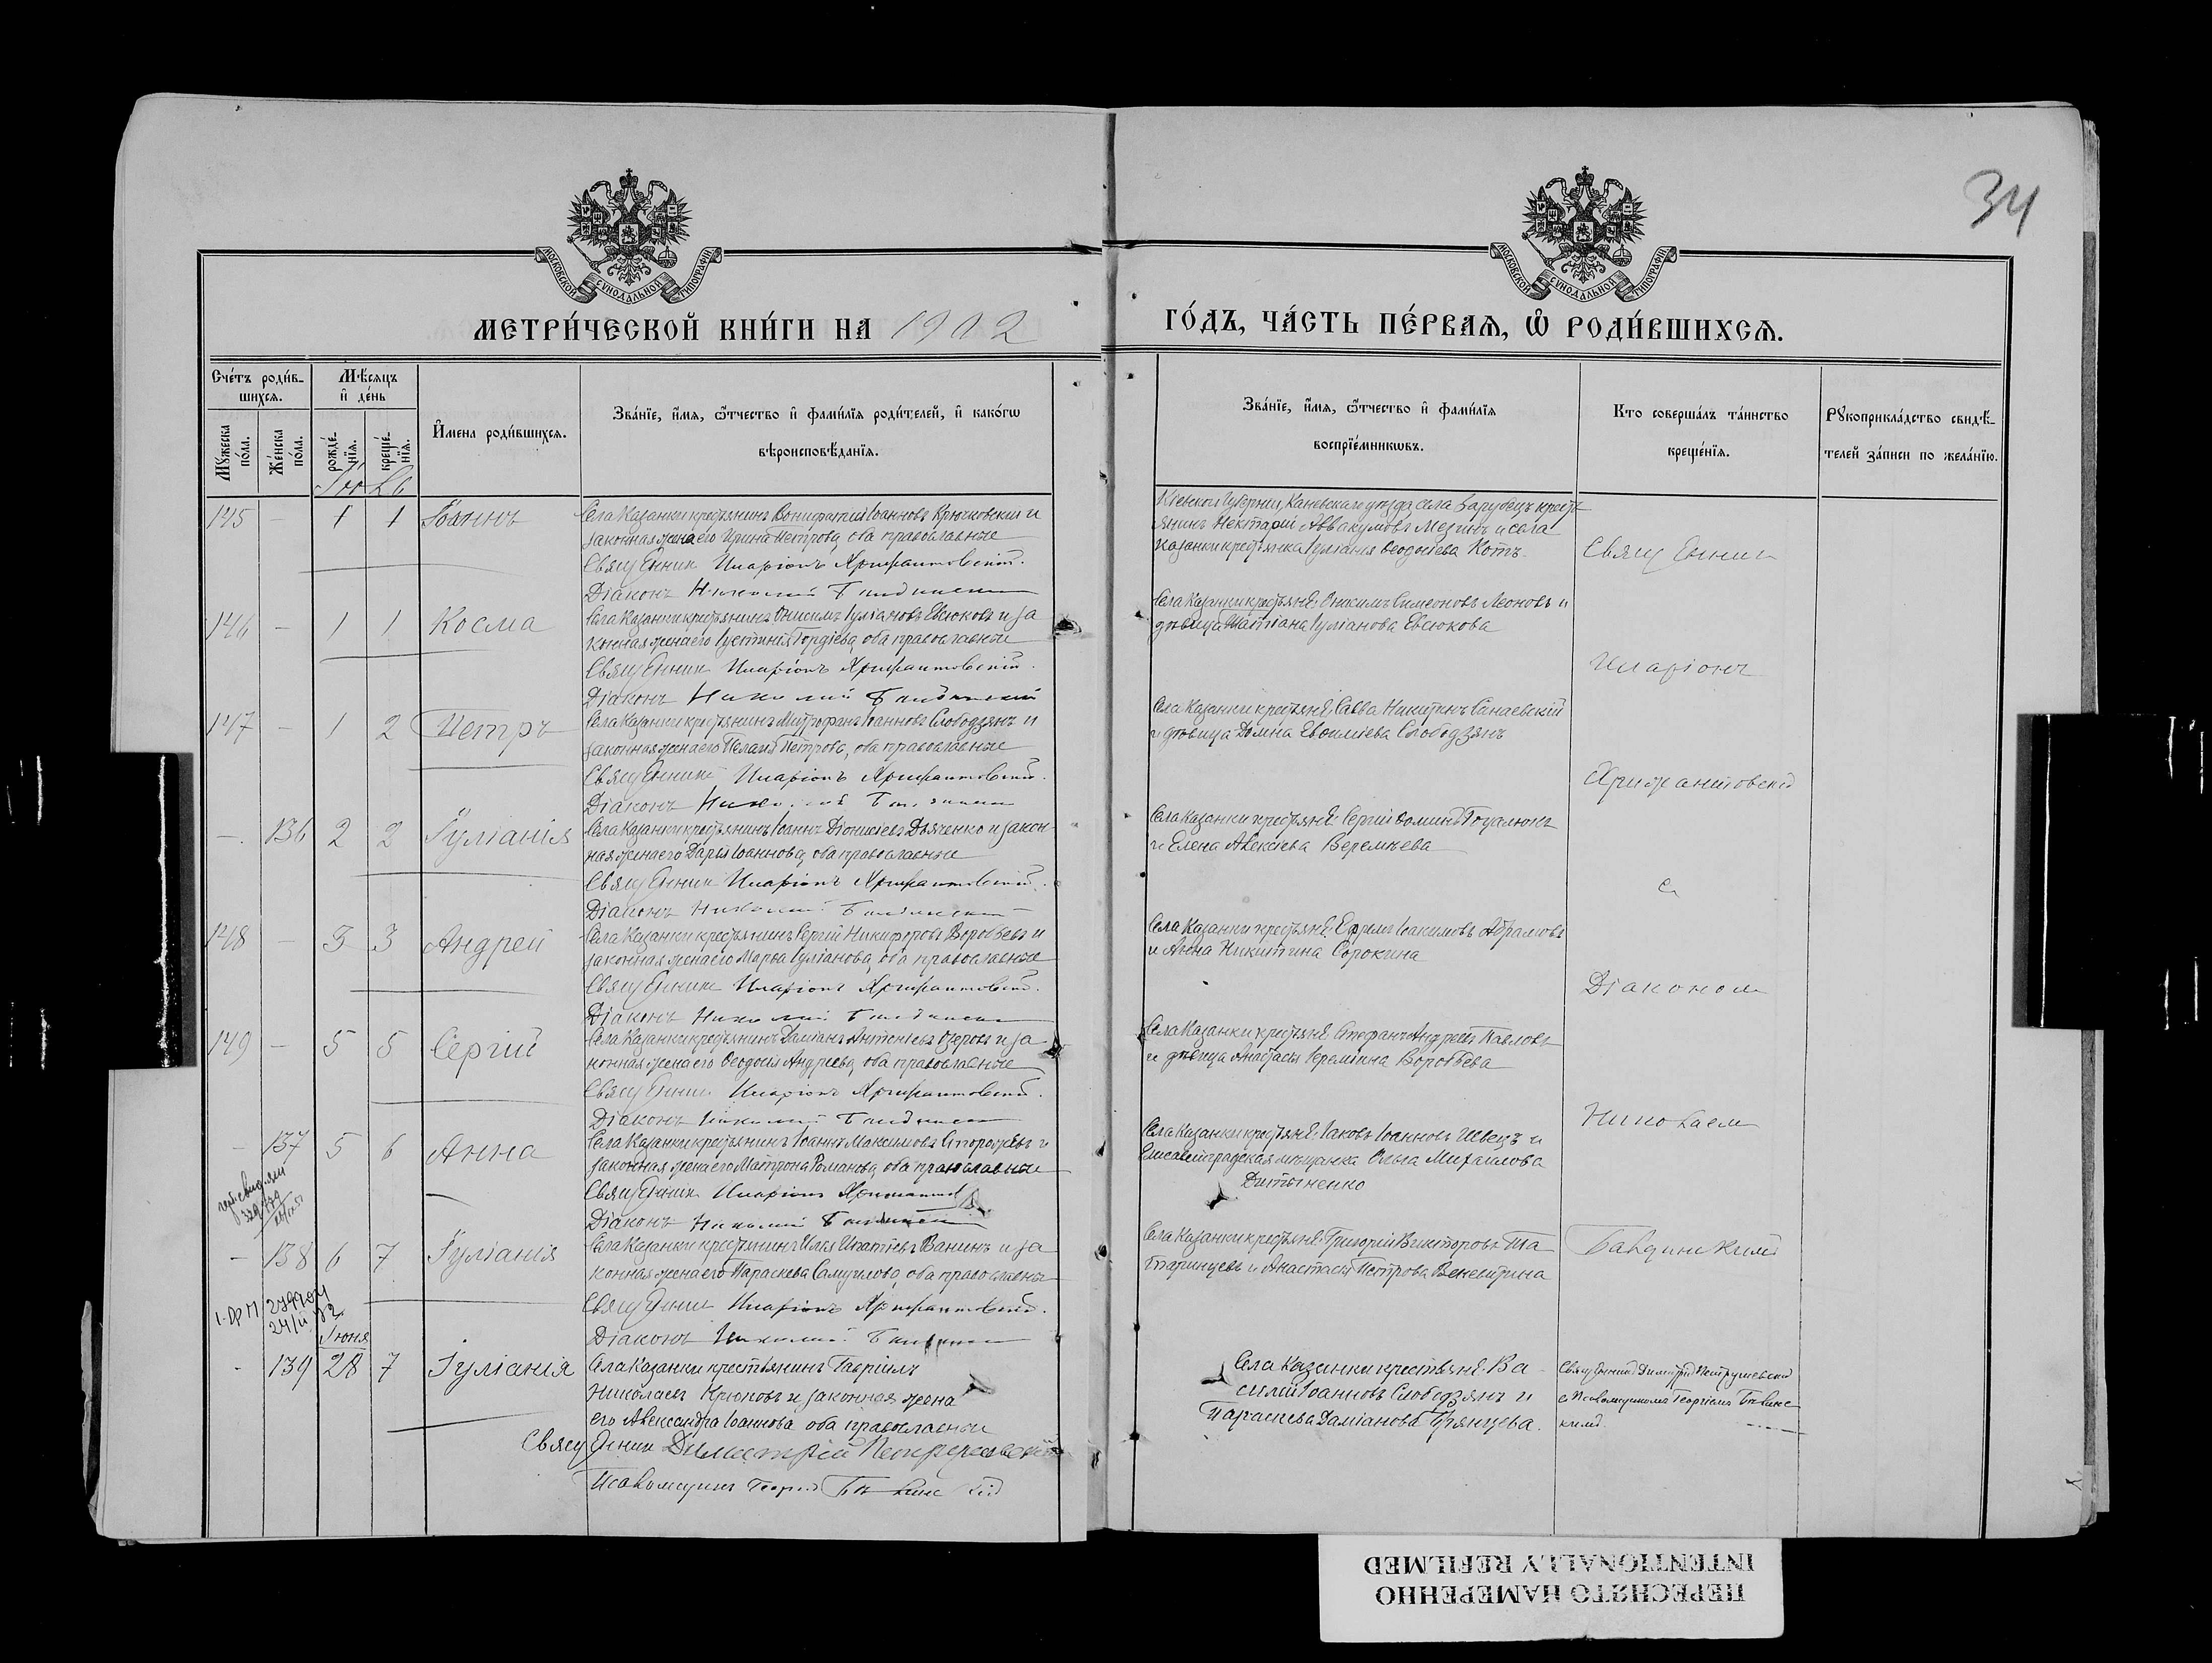 34
МОСКОВСКОЙ СѴНОДАЛЬНОЙ ТИПОГРАФІИ
МОСКОВСКОЙ СѴНОДАЛЬНОЙ ТИПОГРАФІИ
МЕТРИ́ЧЕСКОЙ КНИ́ГИ НА 1902
ГО́ДЪ, ЧА́СТЬ ПЕ́РВАѦ, Ѽ РОДИ́ВШИХСѦ.
Сче́тъ роди́в-
шихсѧ.
Мѣ́сѧцъ
и҆ де́нь
Мꙋ́жеска
по́ла.
Же́нска
по́ла.
рожде́-
нїѧ.
креще́-
нїѧ.
И҆мена роди́вшихсѧ.
Зва́нїе, и҆́мѧ, ѻ҆́тчество и҆ фами́лїѧ роди́телей, и҆ како́гѡ
вѣроисповѣ́данїѧ.
Зва́нїе, и҆́мѧ, ѻ҆́тчество и҆ фами́лїѧ
воспрїе́мникѡвъ.
Кто соверша́лъ та́инство
креще́нїѧ.
Рꙋкоприкла́дство свидѣ́-
телей за́писи по жела́нїю.
145 - 1 1 Іоаннъ
Села Казанки крестьянинъ Вонифатій Іоанновъ Крючковскій и
законная жена его Ирина Петрова, оба православные
Священник Иларіонъ Хрисантовскій.
Діаконъ Николай
Кіевской Губерніи, Каневскаго уѣзда, села Зарубецъ крест-
янинъ Нектарій Аввакумовъ Мезинъ и села
Казанки крестьянка Іуліанія Ѳеодосіева Котъ.
Священник
146 - 1 1 Косма
Села Казанки крестьянинъ Онисимъ Іуліановъ Евсюковъ и за
конная жена его Іустина Гордіева, оба православные
Священник Иларіонъ Хрисантовскій.
Діаконъ Николай
Села Казанки крестьяне: Онисимъ Симеоновъ Леоновъ и
дѣвица Татіана Іуліанова Евсюкова
Иларіонъ
147 - 1 2 Петръ
Села Казанки крестьянинъ Митрофанъ Іоанновъ Слободзянъ и
законная жена его Пелагія Петрова, оба православные
Священник Иларіонъ Хрисантовскій.
Діаконъ Николай
Села Казанки крестьяне: Савва Никитинъ Санаевскій
и дѣвица Домна Евѳиміева Слободзянъ
Хрисантовскій
- 136 2 2 Іуліанія
Села Казанки крестьянинъ Іоаннъ Діонисіевъ Дьяченко и закон-
ная жена его Дарья Іоаннова, оба православные
Священник Иларіонъ Хрисантовскій.
Діаконъ Николай
Села Казанки крестьяне: Сергій Ѳоминъ
и Елена Алексіева Веремѣева
съ
148 - 3 3 Андрей
Села Казанки крестьянинъ Сергій Никифоровъ Воробьевъ и
законная жена его Марѳа Іуліанова, оба православные
Священник Иларіонъ Хрисантовскій.
Діаконъ Николай
Села Казанки крестьяне: Ефремъ Іоакимовъ Абрамовъ
и Анна Никитина Сорокина
Діакономъ
149 - 5 5 Сергій
Села Казанки крестьянинъ Даміанъ Антоніевъ Озеровъ и за
конная жена его Ѳеодосія Андреева, оба православные
Священник Иларіонъ Хрисантовскій.
Діаконъ Николай
Села Казанки крестьяне: Стефанъ Андреевъ Павловъ
и дѣвица Анастасія Іереміина Воробьева
Николаем
- 137 5 6 Анна
Села Казанки крестьянинъ Іоаннъ Максимовъ Сторожевъ и
законная жена его Матрона Романова, оба православные
Священник Иларіонъ
Діаконъ Николай
Села Казанки крестьяне: Іаковъ Іоанновъ Швецъ и
Елисаветградская мѣщанка Ольга Михайлова
Дитыненко
- 138 6 7 Іуліанія
Села Казанки крестьянинъ Илія Ипатіевъ Ванинъ и за
конная жена его Параскева Самуилова, оба православные
Священник Иларіонъ Хрисантовскій.
Діаконъ Николай
Села Казанки крестьяне: Григорій Викторовъ Та
таринцевъ и Анастасія Петрова Веневитина
Іюня
- 139 28 7 Іуліанія
Села Казанки крестьянинъ Гавріилъ
Николаевъ Крюковъ и законная жена
его Александра Іоаннова оба православные
Священник Димитрій Петрушевскій
Псаломщикъ Георгій
Села Казанки крестьяне: Ва-
силій Іоанновъ Слободзянъ и
Параскева Даміанова Грянцева.
Священник Димитрій Петрушевскій
съ Псаломщикомъ Георгіемъ
ПЕРЕСНЯТО НАМЕРЕННО
INTENTIONALLY REFILMED